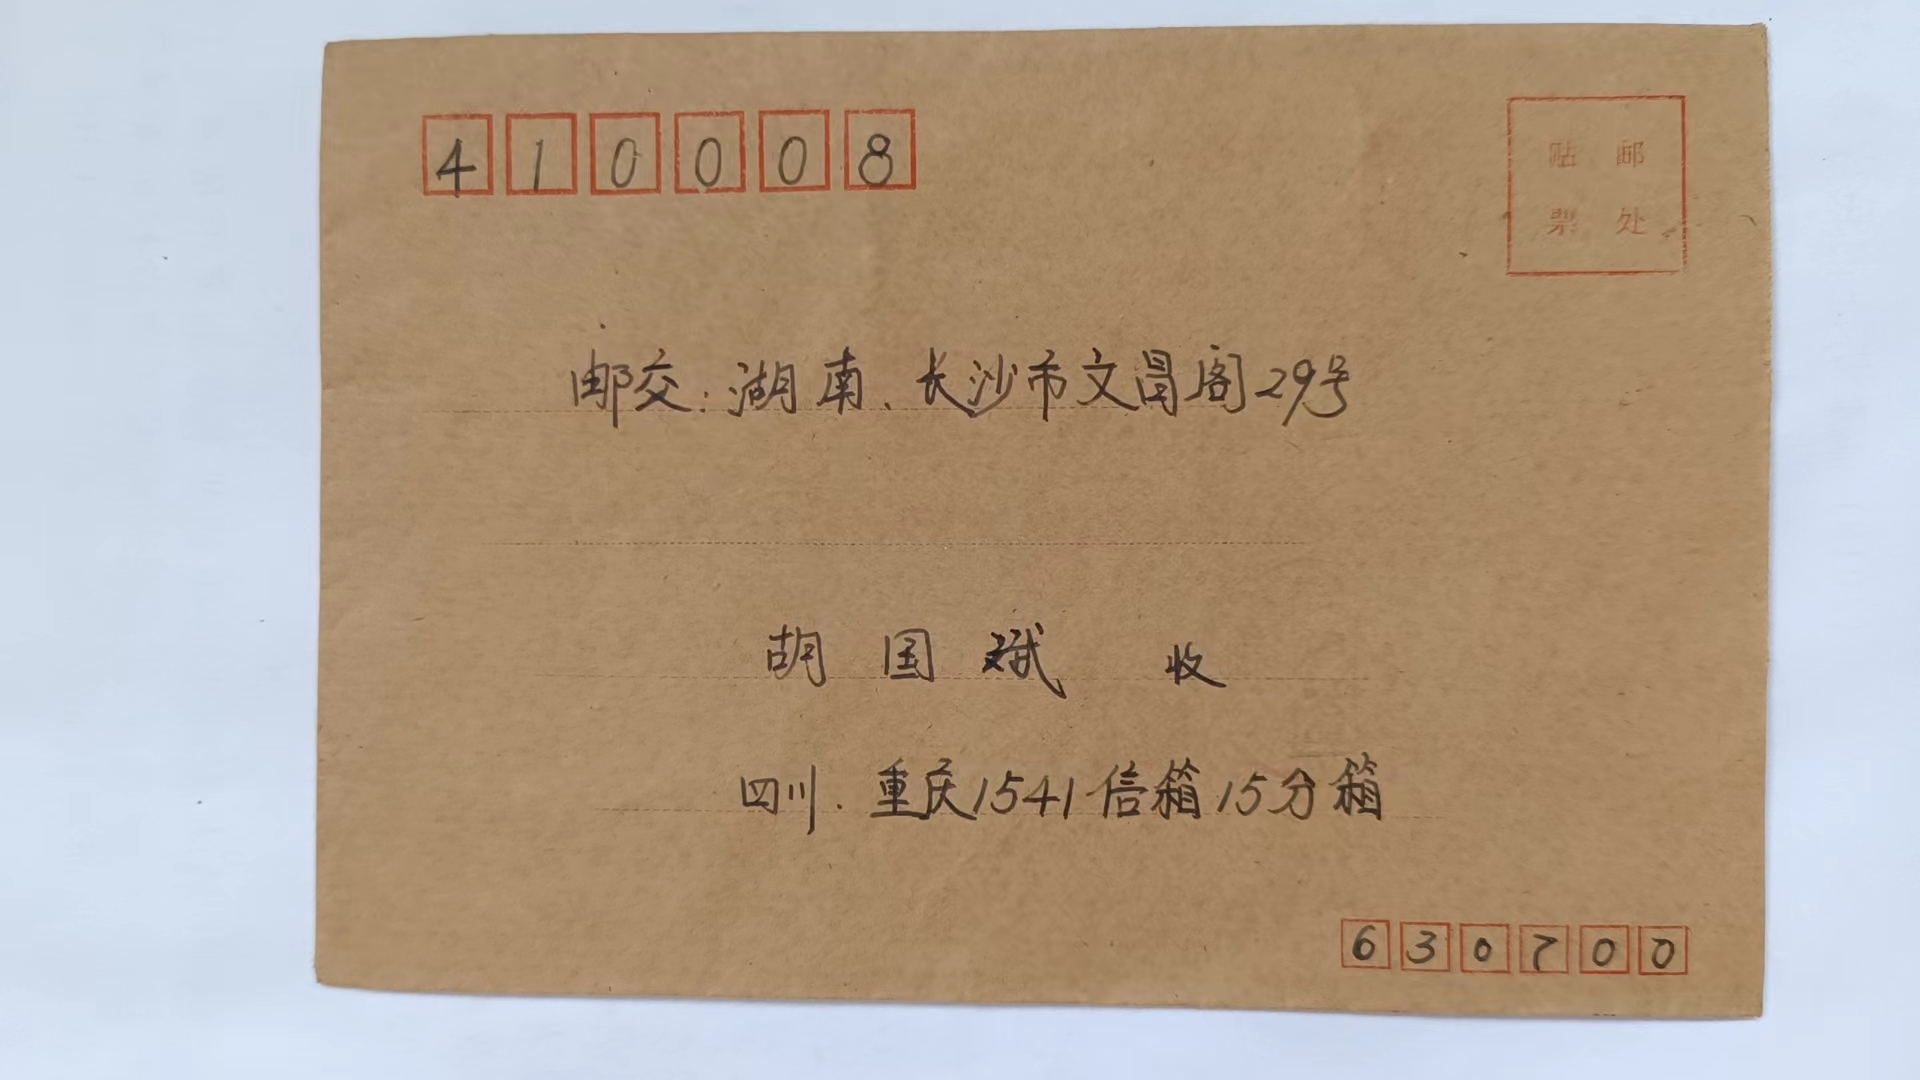 410008
贴邮
票处
邮交：湖南.长沙市文昌阁29号
胡国斌 收
四川.重庆1541信箱15分箱
630700